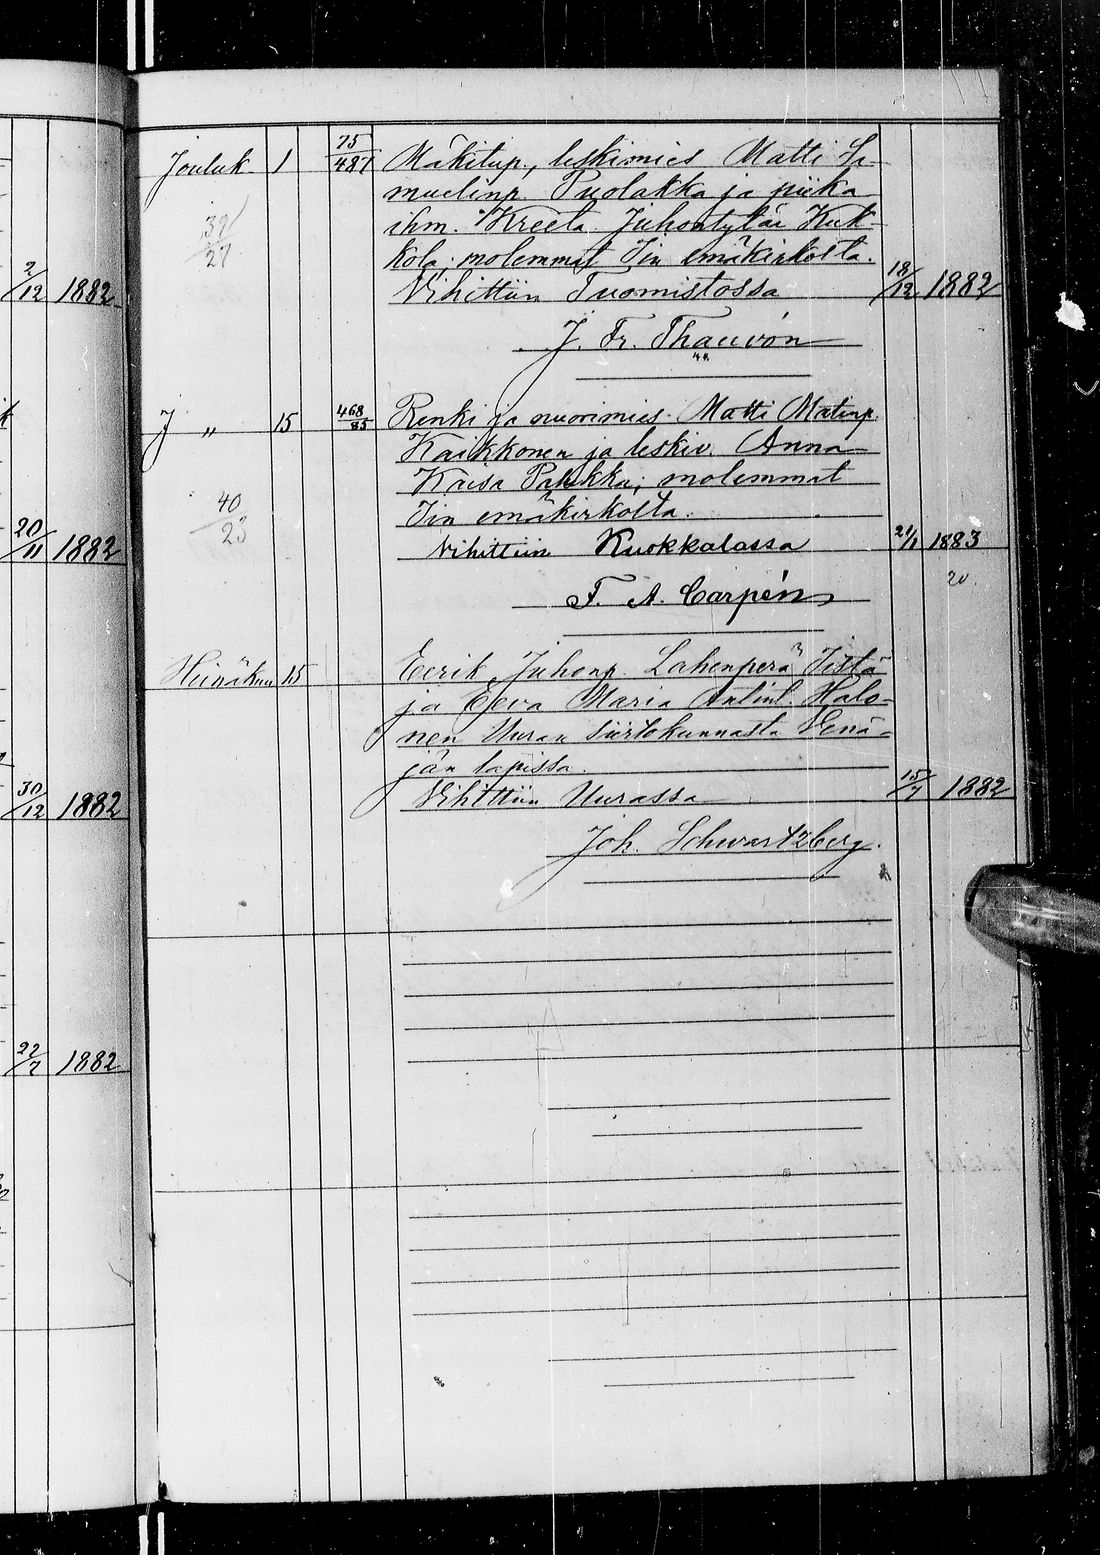 2/12 1882
20/11 1882
30/12 1882
22/7 1882
Jouluk 1 75/487 Mäkitup., leskimies Matti Sa-
muelinp. Puolakka ja piika
39/27 ihm. Kreeta Juhontytär Kuk-
kola; molemmat Iin emäkirkolta.
Vihittiin Tuomistossa 18/12 1882
J. Fr. Thauvón
J " 15 468/85 Renki ja nuorimies Matti Matinp.
Kaikkonen ja leskiv. Anna
Kaisa Pakkka; molemmat
40/23 Iin emäkirkolta.
Vihittiin Kuokkalassa 21/1 1883
20.
F. A. Carpén
Heinäkuu 15 Eerik Juhonp. Lahenperä Iistä
ja Eeva Maria Antint. Halo-
nen Uuran siirtokunnasta Venä-
jän lapissa.
Vihittiin Uurassa 15/7 1882
Joh. Schwartzberg.